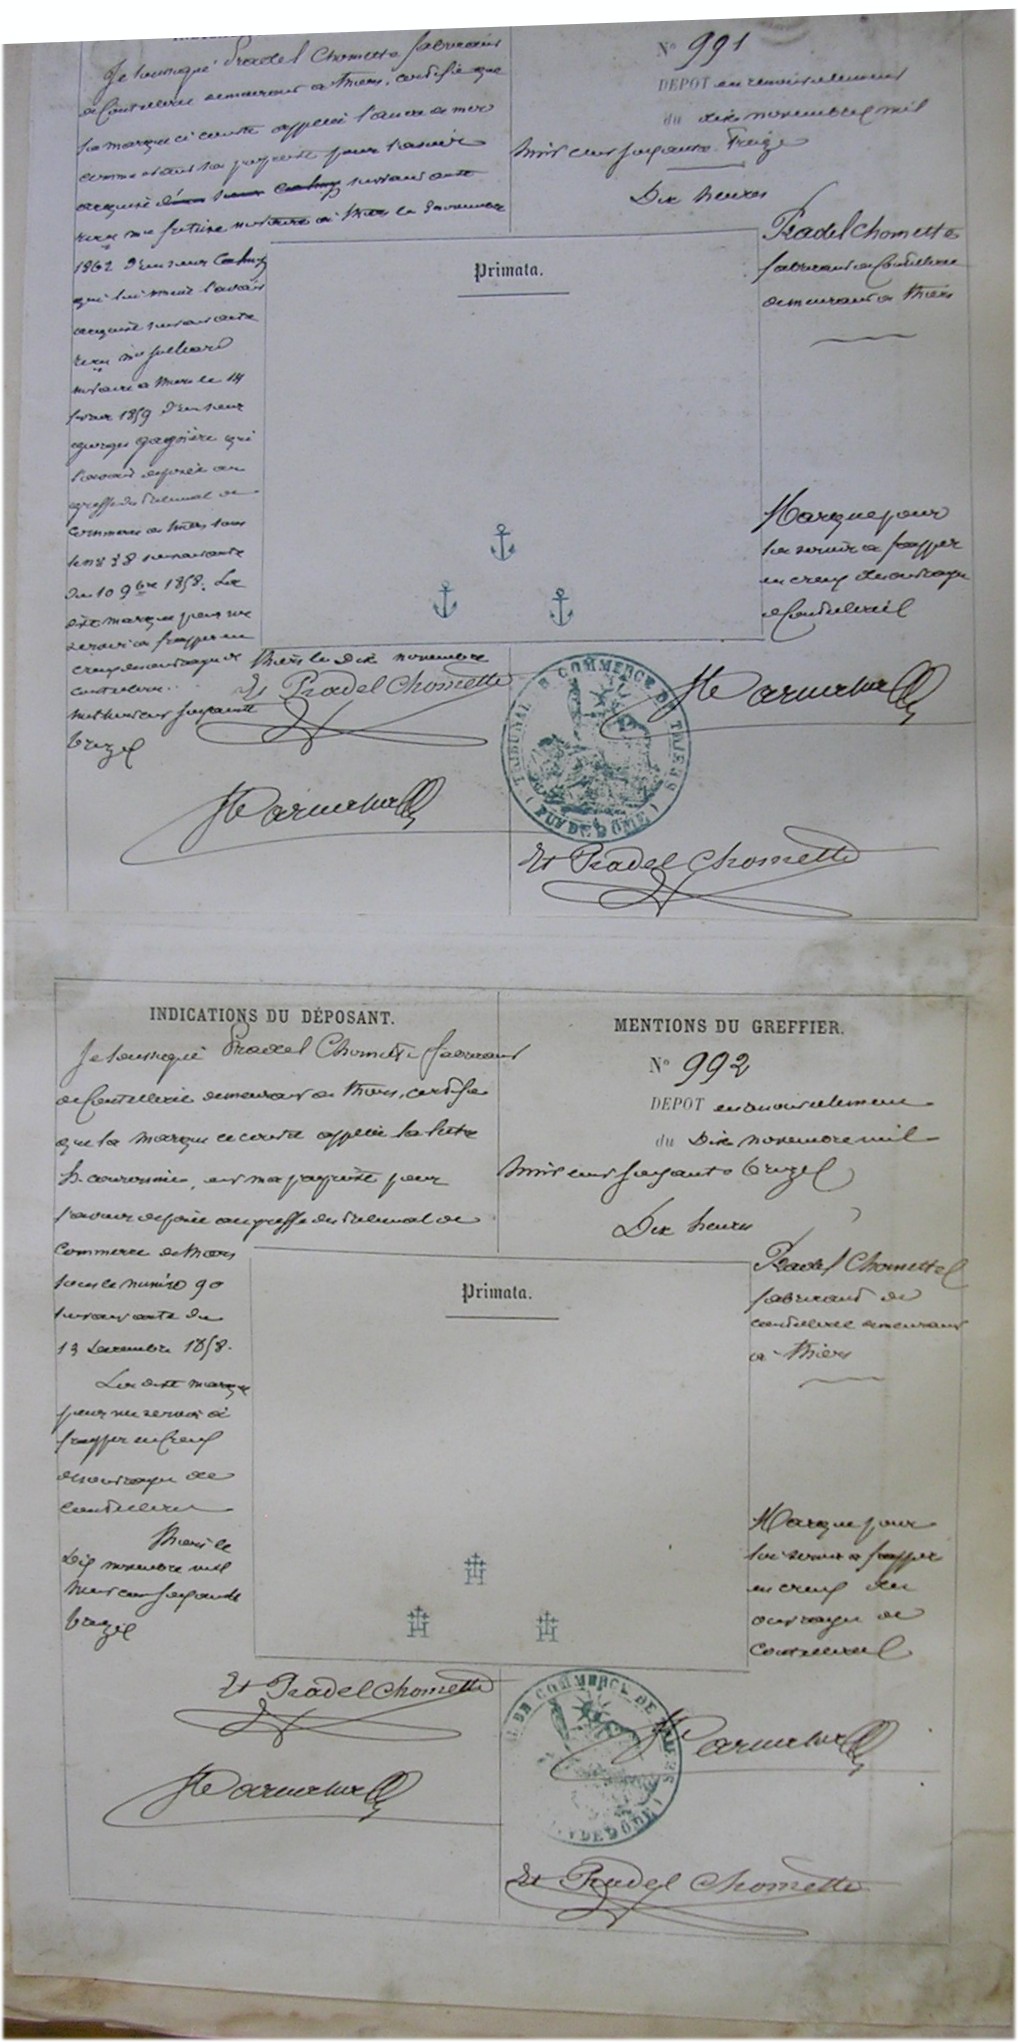 Je soussigné Pradel Chomette fabricant
de Coutellerie demeurant à Thiers, certifie que
la marque ci contre appelée l'ancre de mer
comme étant ma propriété pour l'avoir
acquise suivant acte
reçu me notaire à Thiers le 3 novembre
1862 d'un sieur
qui lui même l'avait
acquise suivant acte
reçu me Juilhard
notaire à Thiers le 14
février 1859 d'un sieur
georges qui
l'avait déposée au
greffe du tribunal de
Commerce de Thiers sous
le no 38 suivant acte
du 10 9bre 1858. La
dite marque pour me
servir à frapper en
creux des ouvrages de
coutellerie.
Thiers le Dix novembre
mil huit cent soixante
treize
Et Pradel Chomette
No 991
DEPOT en renouvellement
du dix novembre mil
huit cent soixante treize
Dix heures
Pradel Chomette
fabricant de Coutellerie
demeurant à Thiers
Primata.
Marque pour
lui servir à frapper
en creux des ouvrages
de Coutellerie
TRIBUNAL DE COMMERCE DE THIERS
(PUY DE DÔME)
Et Pradel Chomette
INDICATIONS DU DÉPOSANT.
Je soussigné Pradel Chomette fabricant
de Coutellerie demeurant à Thiers, certifie
que la marque ci contre appelée la lettre
H couronnée, est ma propriété pour
l'avoir déposée au greffe du tribunal de
Commerce de Thiers
sous le numéro 90
suivant acte du
13 Décembre 1858.
La dite marque
pour me servir à
frapper en Creux
des ouvrages de
coutellerie
Thiers le
Dix novembre mil
huit cent soixante
treize
Et Pradel Chomette
MENTIONS DU GREFFIER.
No 992
DEPOT en renouvellement
du Dix novembre mil
huit cent soixante treize
Dix heures
Pradel Chomette
fabricant de
coutellerie demeurant
à Thiers
Primata.
Marque pour
lui servir à frapper
en creux des
ouvrages de
Coutellerie
DE COMMERCE DE THIERS
PUY DE DÔME)
Et Pradel Chomette